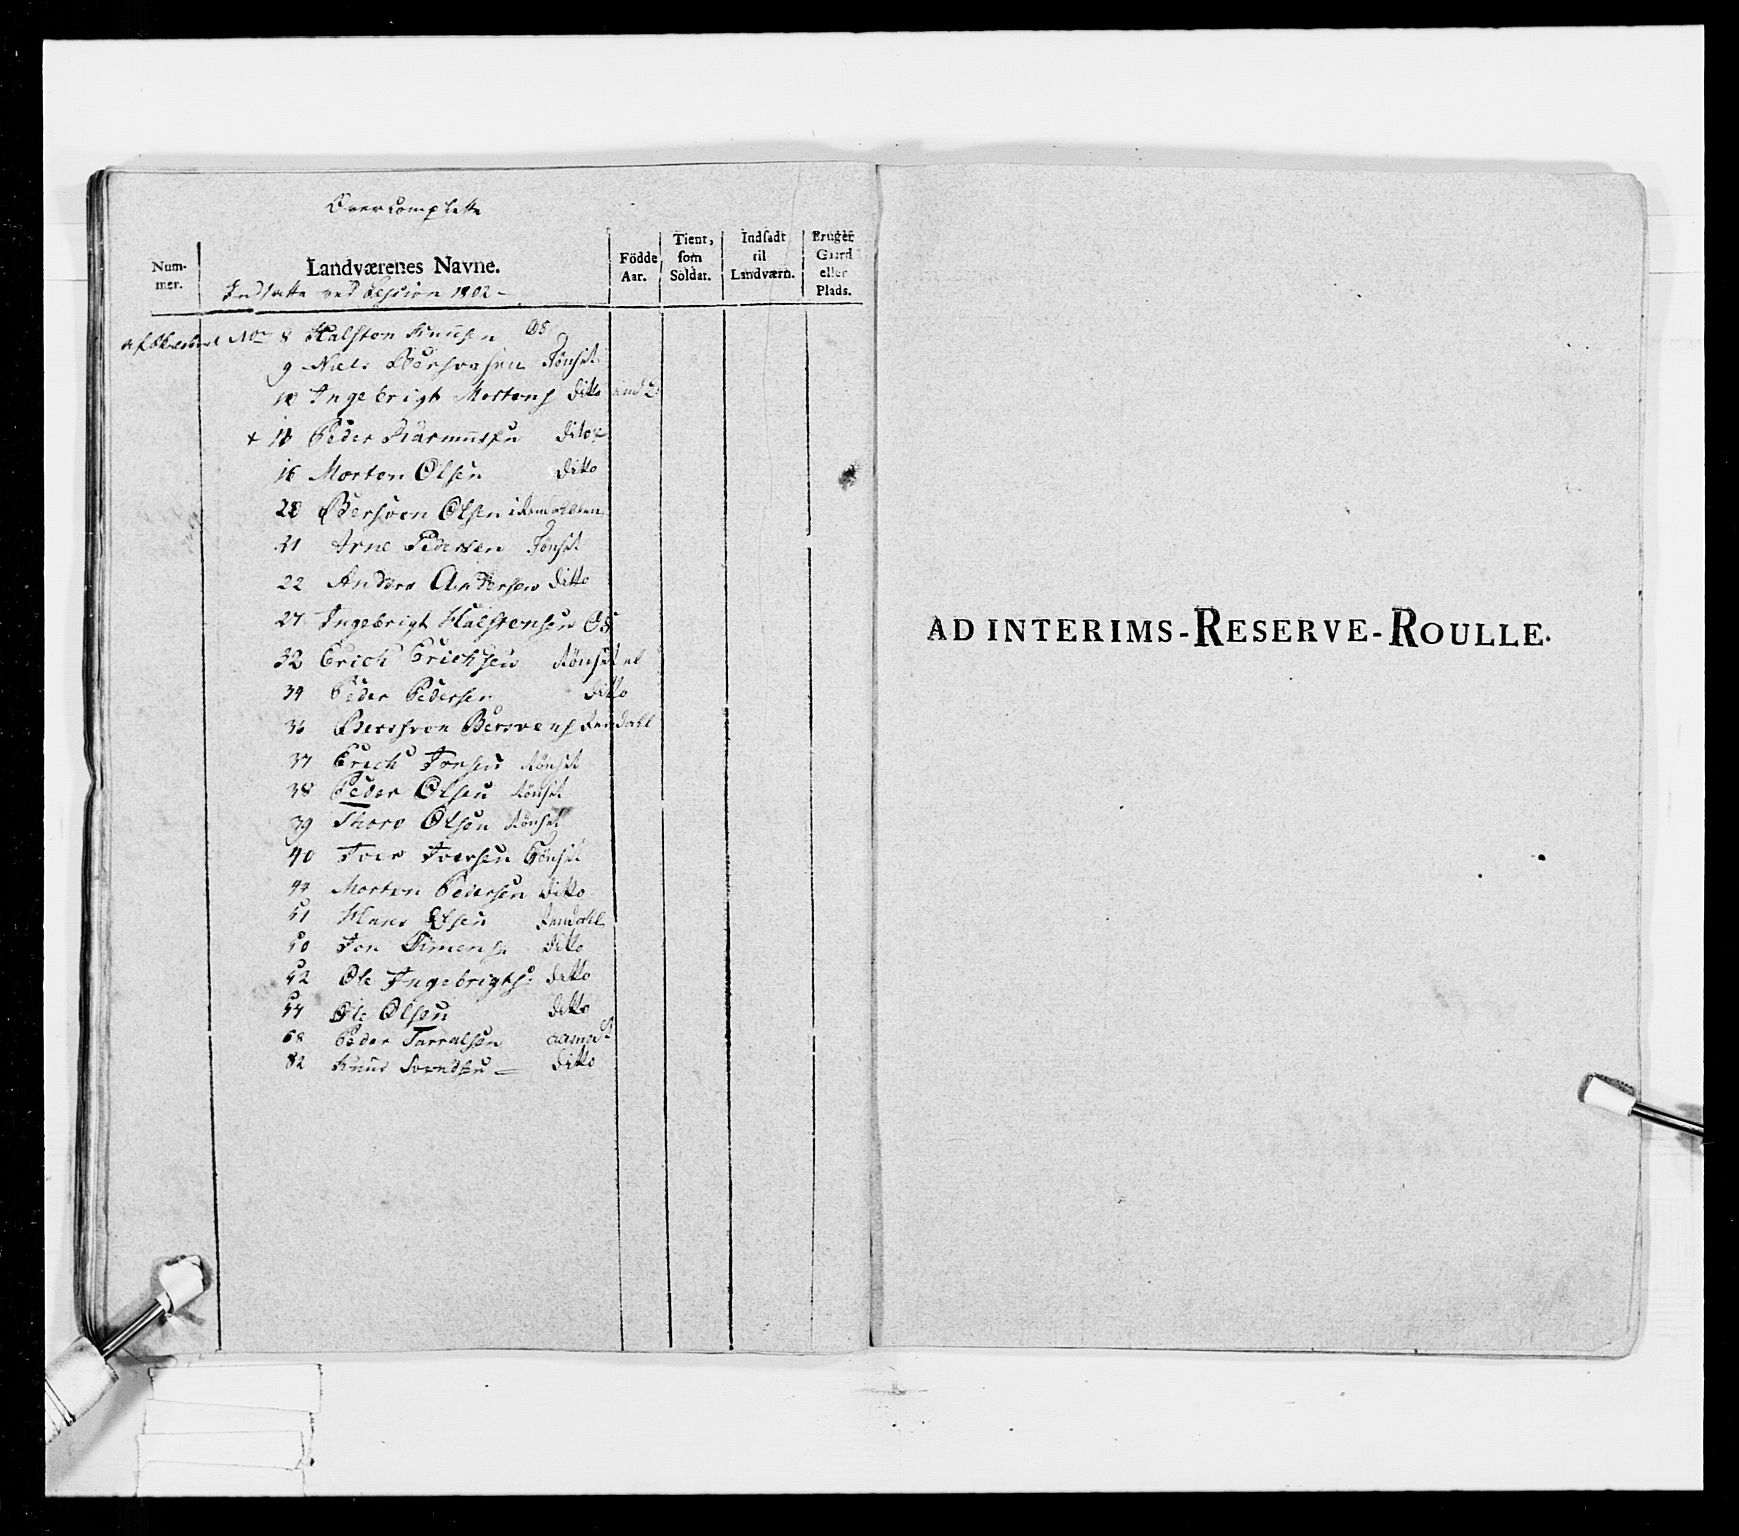 Overcomplette
Num-
mer.
Landværenes Navne.
Födde
Aar.
Tient,
som
Soldat.
Indsadt
til
Landværn.
Bruger
Gaard
eller
Plads.
Indsatte ved Session 1802 -
No 8 Halston Knudsen Os
9 Niels Bersvensen Tönset
Ingebrigt Mortens Ditto
+ Peder Rasmussen Dito
16 Morten Olsen Ditto
Bersven Olsen i Rendalen
21 Arne Pedersen Tönset
22 Anders Andersen Ditto
27 Ingebrigt Halstensen Os
32 Erich Erichsen Tönset
34 Peder Pedersen Ditto
36 Bersven Bersvens Rendahl
37 Erich Jonsen Tönset
38 Peder Olsen Tönset
39 Thore Olsen Tönset
40 Iver Iversen Tönset
44 Morten Pedersen Ditto
51 Hans Olsen Rendahl
50 Jon Simens Ditto
52 Ole Ingebrigts: Ditto
54 Ole Olsen Ditto
68 Peder Tarralsen Aamot
82 Knud Svendsen - Ditto
AD INTERIMS-RESERVE-ROULLE.